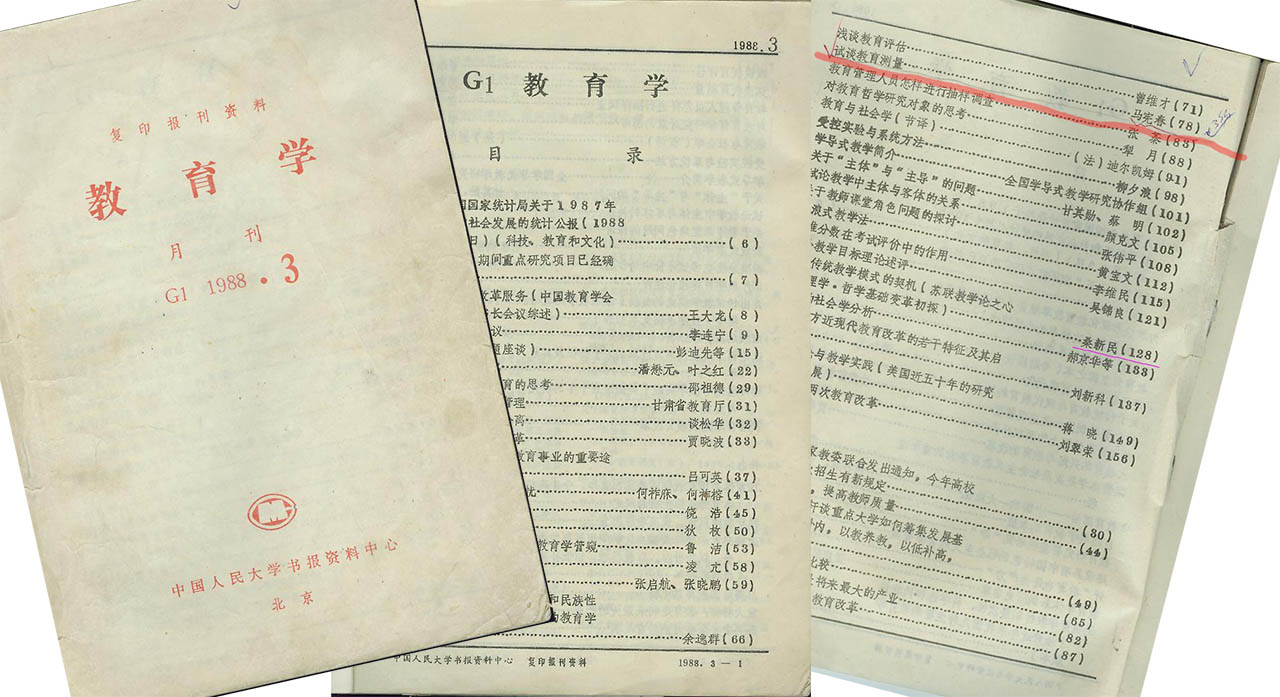 复印报刊资料
教育学
月刊
G1 1988.3
中国人民大学书报资料中心
北京
1988.3
G1 教育学
目录
国家统计局关于1987年
社会发展的统计公报(1988
日)(科技、教育和文化)(6)
期间重点研究项目已经确
(7)
改革服务(中国教育学会
长会议综述)王大龙(8)
议李连宁(9)
题座谈)彭迪先等(15)
潘懋元、叶之红(22)
育的思考邵祖德(29)
管理甘肃省教育厅(31)
离谈松华(32)
革贾晓波(33)
教育事业的重要途
吕可英(37)
忧何祚庥、何祚榕(41)
饶浩(45)
狄枚(50)
教育学管窥鲁洁(53)
凌亢(58)
张启航、张晓鹏(59)
和民族性
的教育学
余逸群(66)
中国人民大学书报资料中心 复印报刊资料 1988.3—1
浅谈教育评估曾维才(71)
试谈教育测量马宪春(78)
教育管理人员怎样进行抽样调查张荼(83)
对教育哲学研究对象的思考犁月(88)
教育与社会学(节译)(法)迪尔凯姆(91)
受控实验与系统方法柳夕浪(98)
学导式教学简介全国学导式教学研究协作组(101)
关于“主体”与“主导”的问题甘其勋、蔡明(102)
试论教学中主体与客体的关系颜克文(105)
关于教师课堂角色问题的探讨张伟平(108)
波式教学法黄宝文(112)
准分数在考试评价中的作用李维民(115)
教学目标理论述评吴锦良(121)
传统教学模式的契机(苏联教学论之心
理学·哲学基础变革初探)桑新民(128)
的社会学分析郝京华等(133)
方近现代教育改革的若干特征及其启
刘新科(137)
与教学实践(美国近五十年的研究
展)蒋晓(149)
两次教育改革刘翠荣(156)
家教委联合发出通知,今年高校
招生有新规定(30)
,提高教师质量(44)
谈重点大学如何筹集发展基
内,以教养教,以低补高,
(49)
比较(65)
是将来最大的产业(82)
教育改革(87)